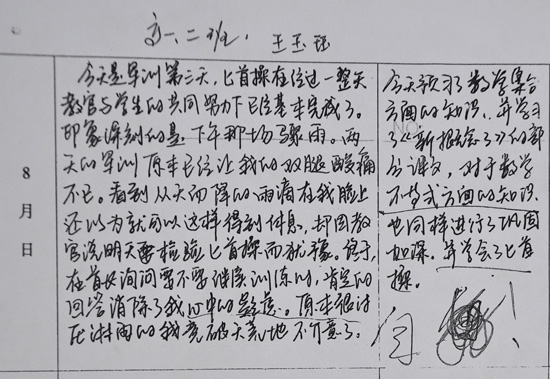 高一、二班. 王玉珏
8月 日
今天是军训第三天，匕首操在经过一整天
教官与学生的共同努力下已经基本完成了。
印象深刻的是下午那一场骤雨。两
天的军训原本已经让我的双腿酸痛
不已。看到从天而降的雨滴在我脸上
还以为就可以这样得到休息，却因教
官说明天要检验匕首操而犹豫。终于，
在首长询问要不要继续训练时，肯定的
回答消除了我心中的疑虑。原本很讨
厌淋雨的我竟破天荒地不介意了。
今天预习了数学集合
方面的知识，并学习
了《新报纸了》的部
分课文，对于数学
不等式方面的知识
也同样进行了巩固
加深。并学会了匕首
操。